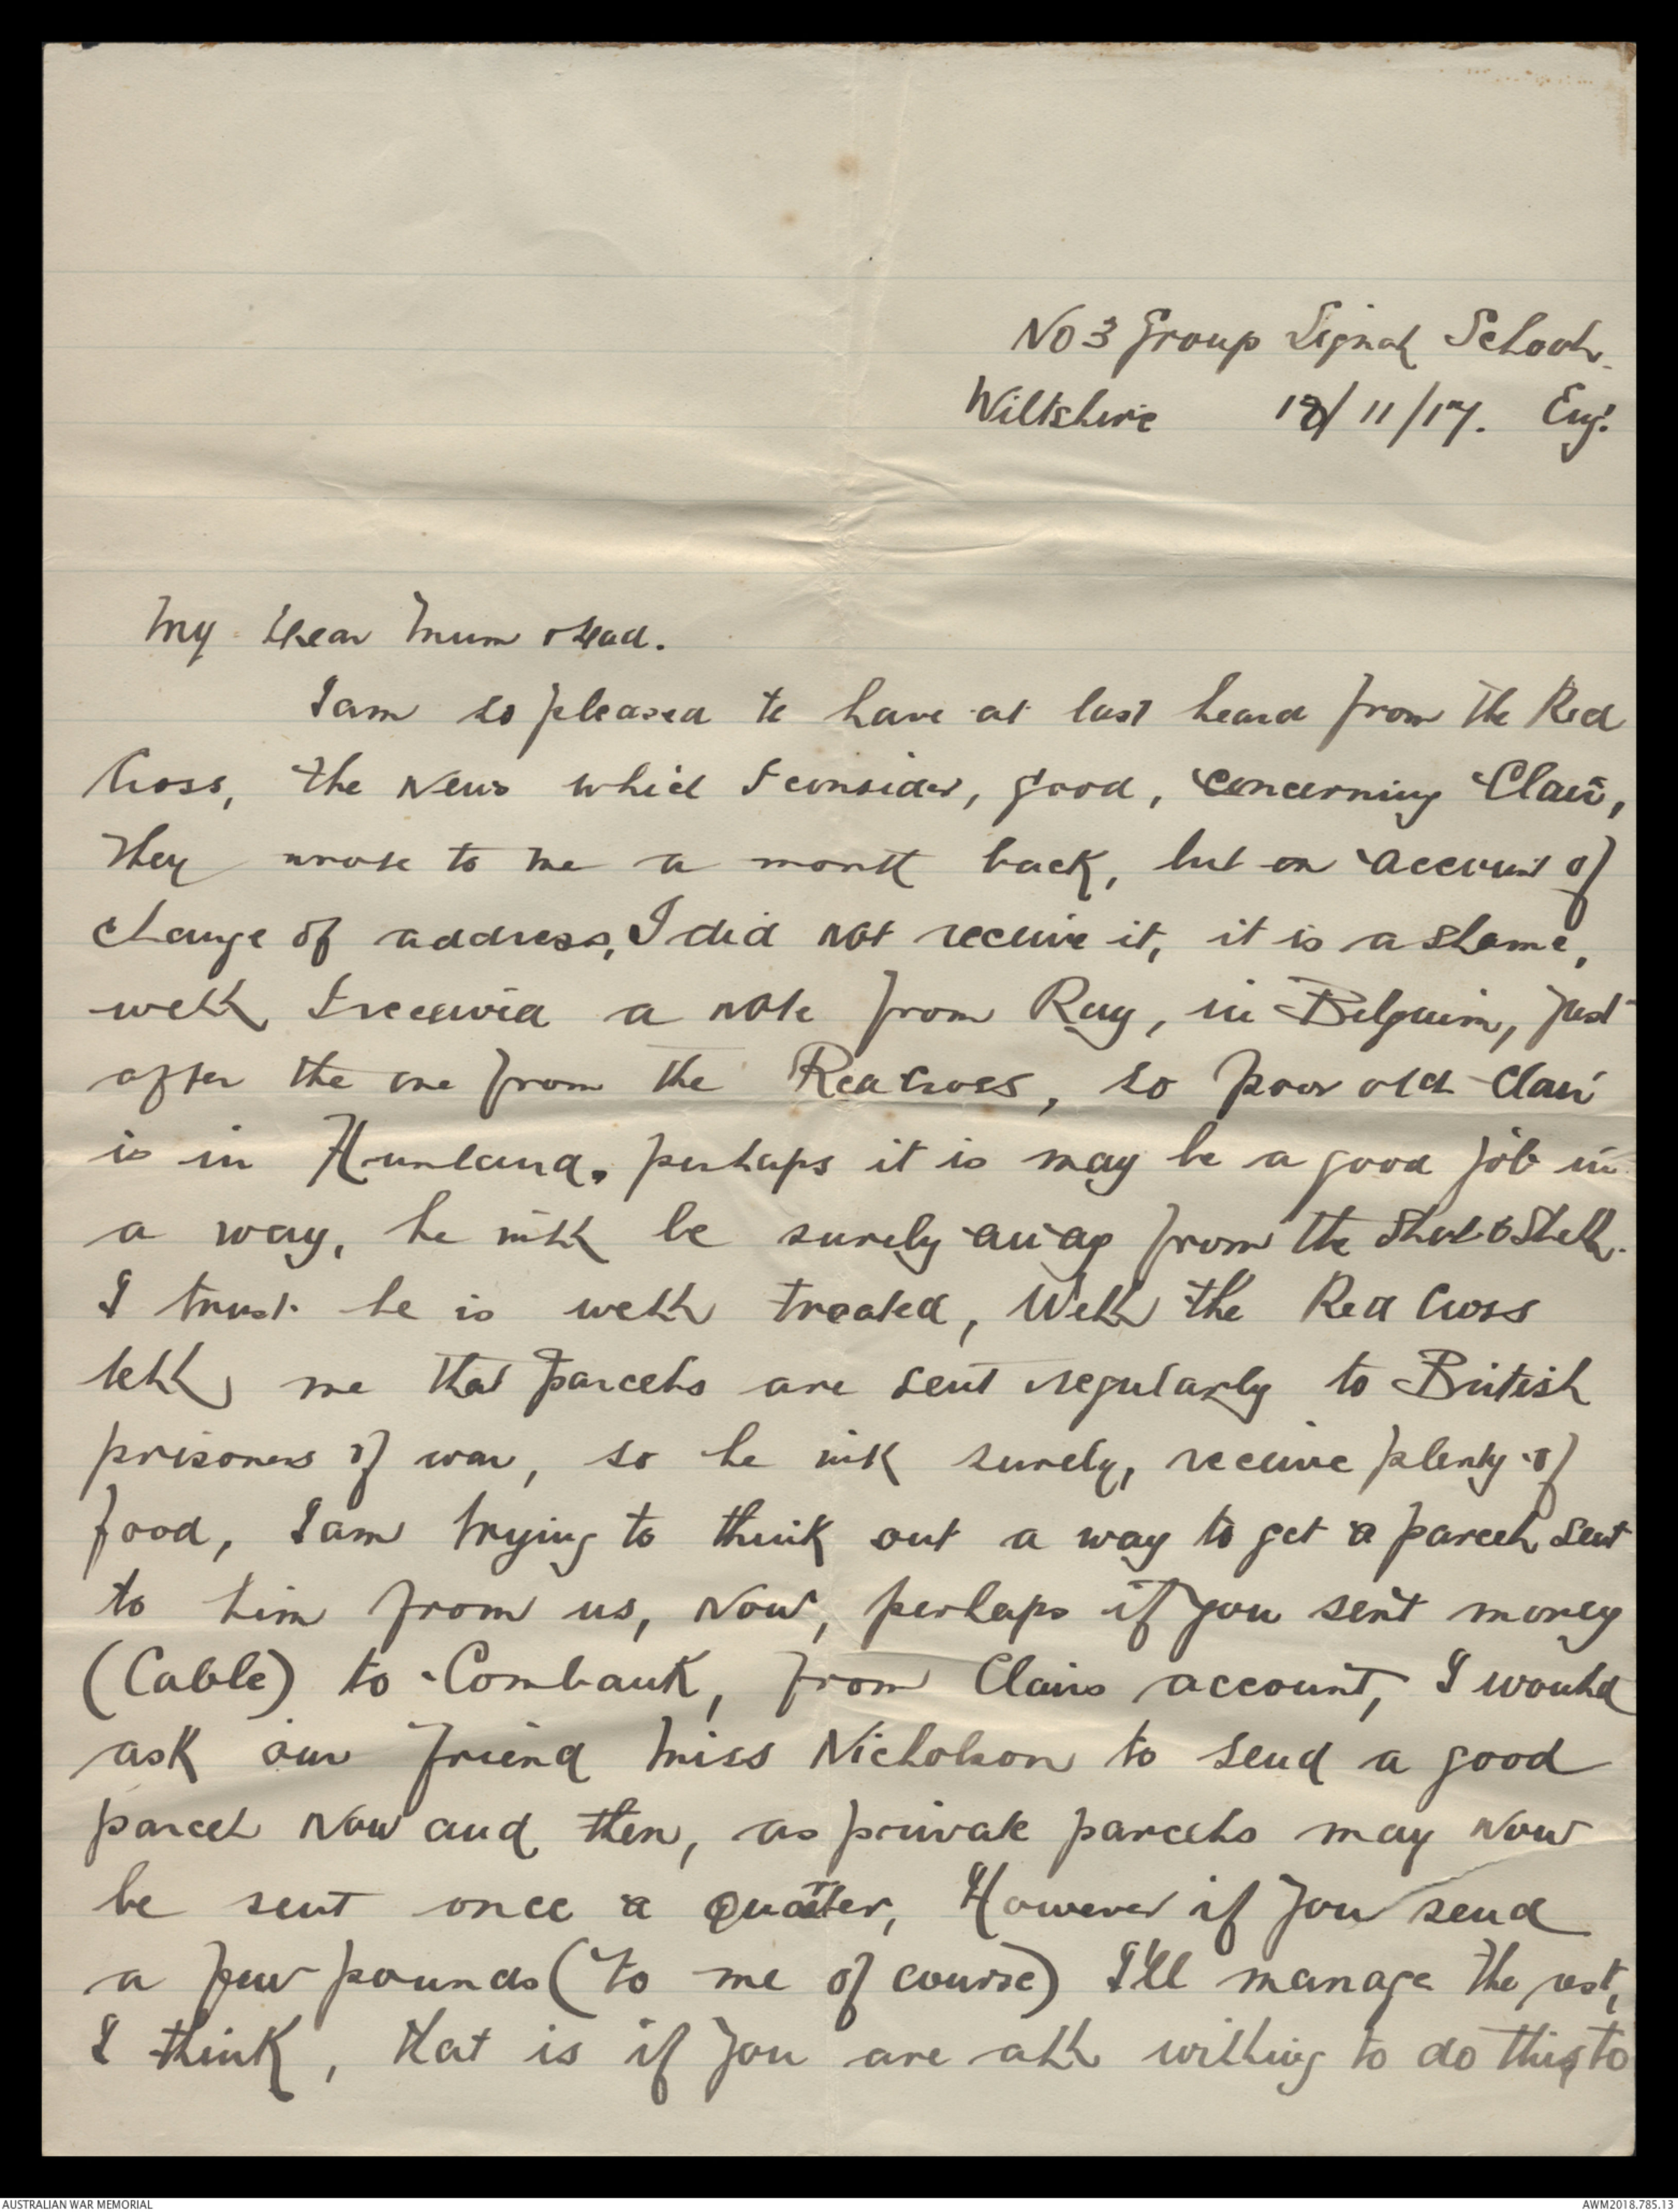 No 3 Group Signal School.
Wiltshire 18/11/17. Eng.
My Dear Mum & Dad.
I am so pleased to have at last heard from the Red
Cross, the news which I consider, good, concerning Clair,
They wrote to me a month back, but on account of
change of address, I did not receive it, it is a shame,
well I received a note from Ray, in Belguim, just
after the one from the Red Cross, so poor old Clair
is in Hunland. perhaps it is may be a good job in
a way, he will be surely away from the Shot & Shell.
I trust he is well treated, Well the Red Cross
tell me that parcels are sent regularly to British
prisoners of war, so he will surely, receive plenty of
food, I am trying to think out a way to get a parcel sent
to him from us, Now, perhaps if you sent money
(Cable) to Combank, from Clairs account, I would
ask our friend Miss Nicholson to send a good
parcel now and then, as private parcels may now
be sent once a quarter, However if you send
a few pounds (to me of course) I'll manage the rest,
I think, that is if you are all willing to do this, to
AUSTRALIAN WAR MEMORIAL
AWM2018.785.13